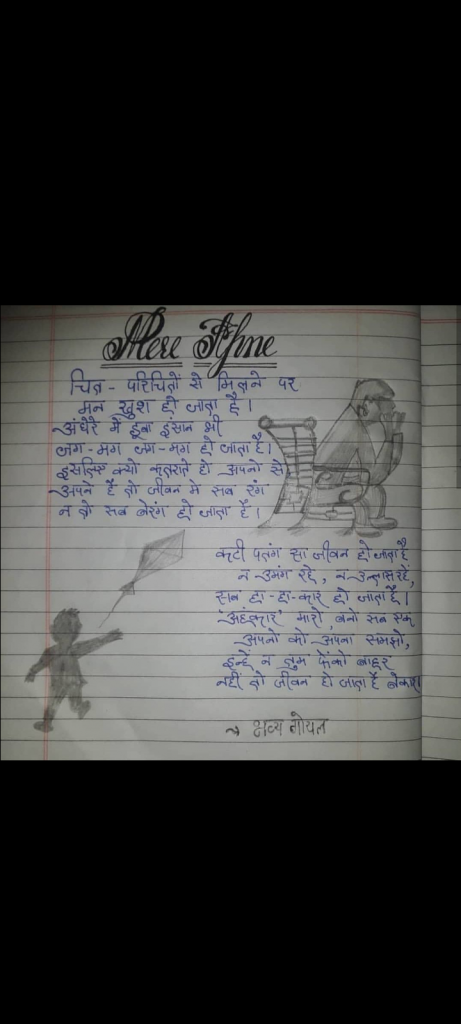 Mere Apne
चित्र-परिचितों से मिलने पर
मन खुश हो जाता है।
अंधेरे में डूबा इंसान भी
जग-मग जग-मग हो जाता है।
इसलिए क्यो कतराते हो अपनो से
अपने है तो जीवन मे सब रंग
न तो सब बेरंग हो जाता है।
कटी पतंग सा जीवन हो जाता है
न उमंग रहे, न उल्लास रहें,
सब हा-हा-कार हो जाता है।
अहंकार मारो, बनो सब एक
अपनो को अपना समझो,
इन्हें न तुम फेंको बाहर
नहीं तो जीवन हो जाता है बेकार।
→ गोयल